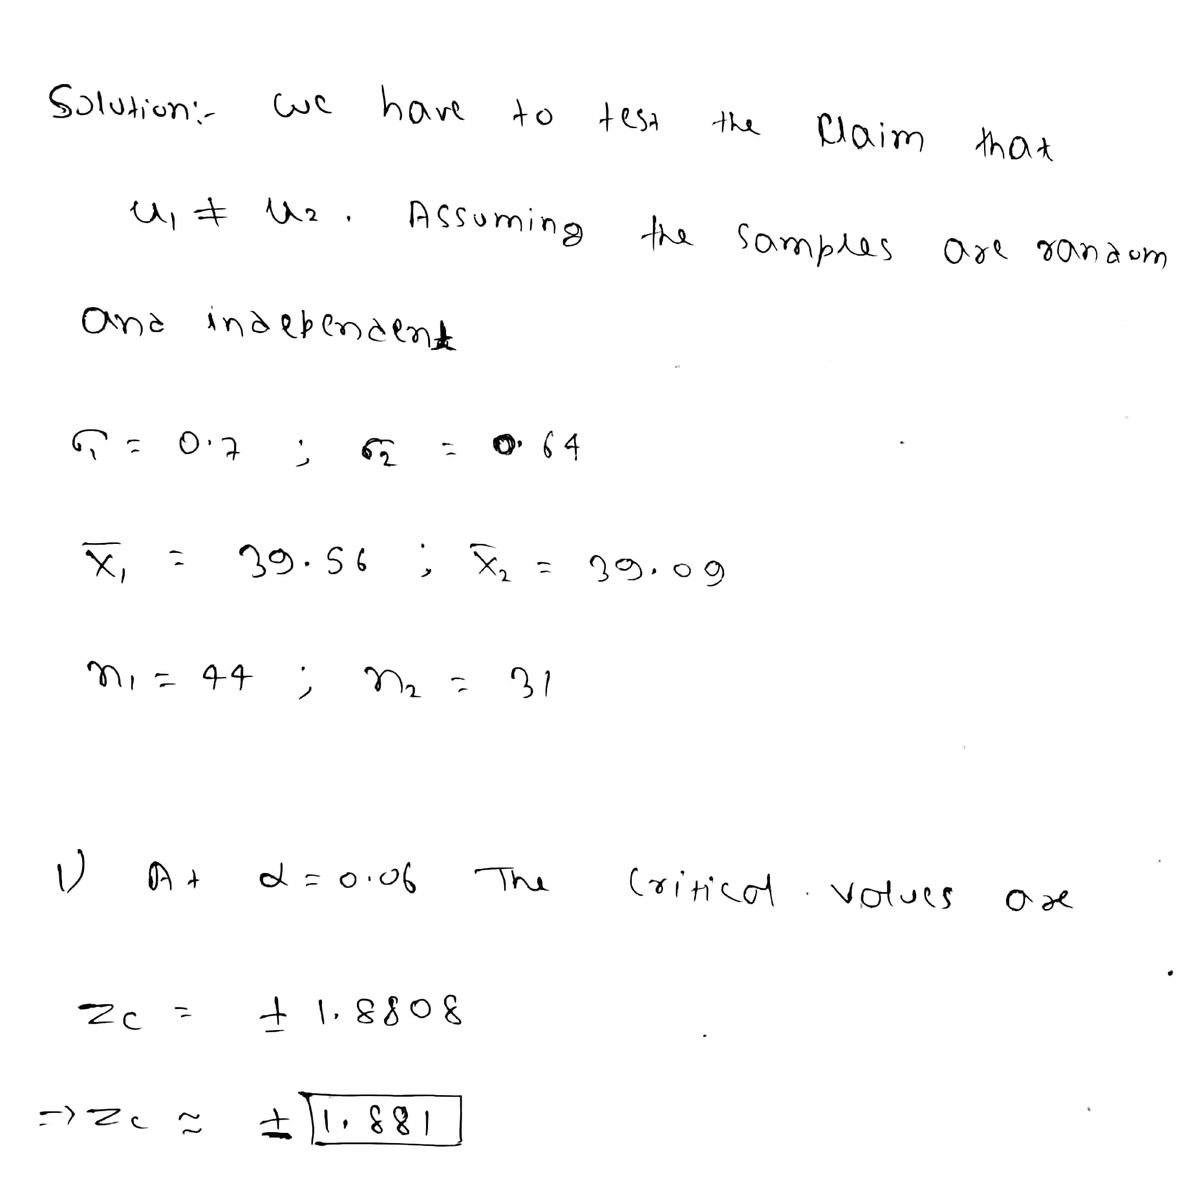 Solution:- we have to test the Claim that
u₁ ≠ u₂. Assuming the samples are random
and independent
σ₁ = 0.7 ; σ₂ = 0.64
x̄₁ = 39.56 ; x̄₂ = 39.09
n₁ = 44 ; n₂ = 31
1) At α = 0.06 The Critical values are
Zc = ± 1.8808
=> Zc ≈ ± 1.881